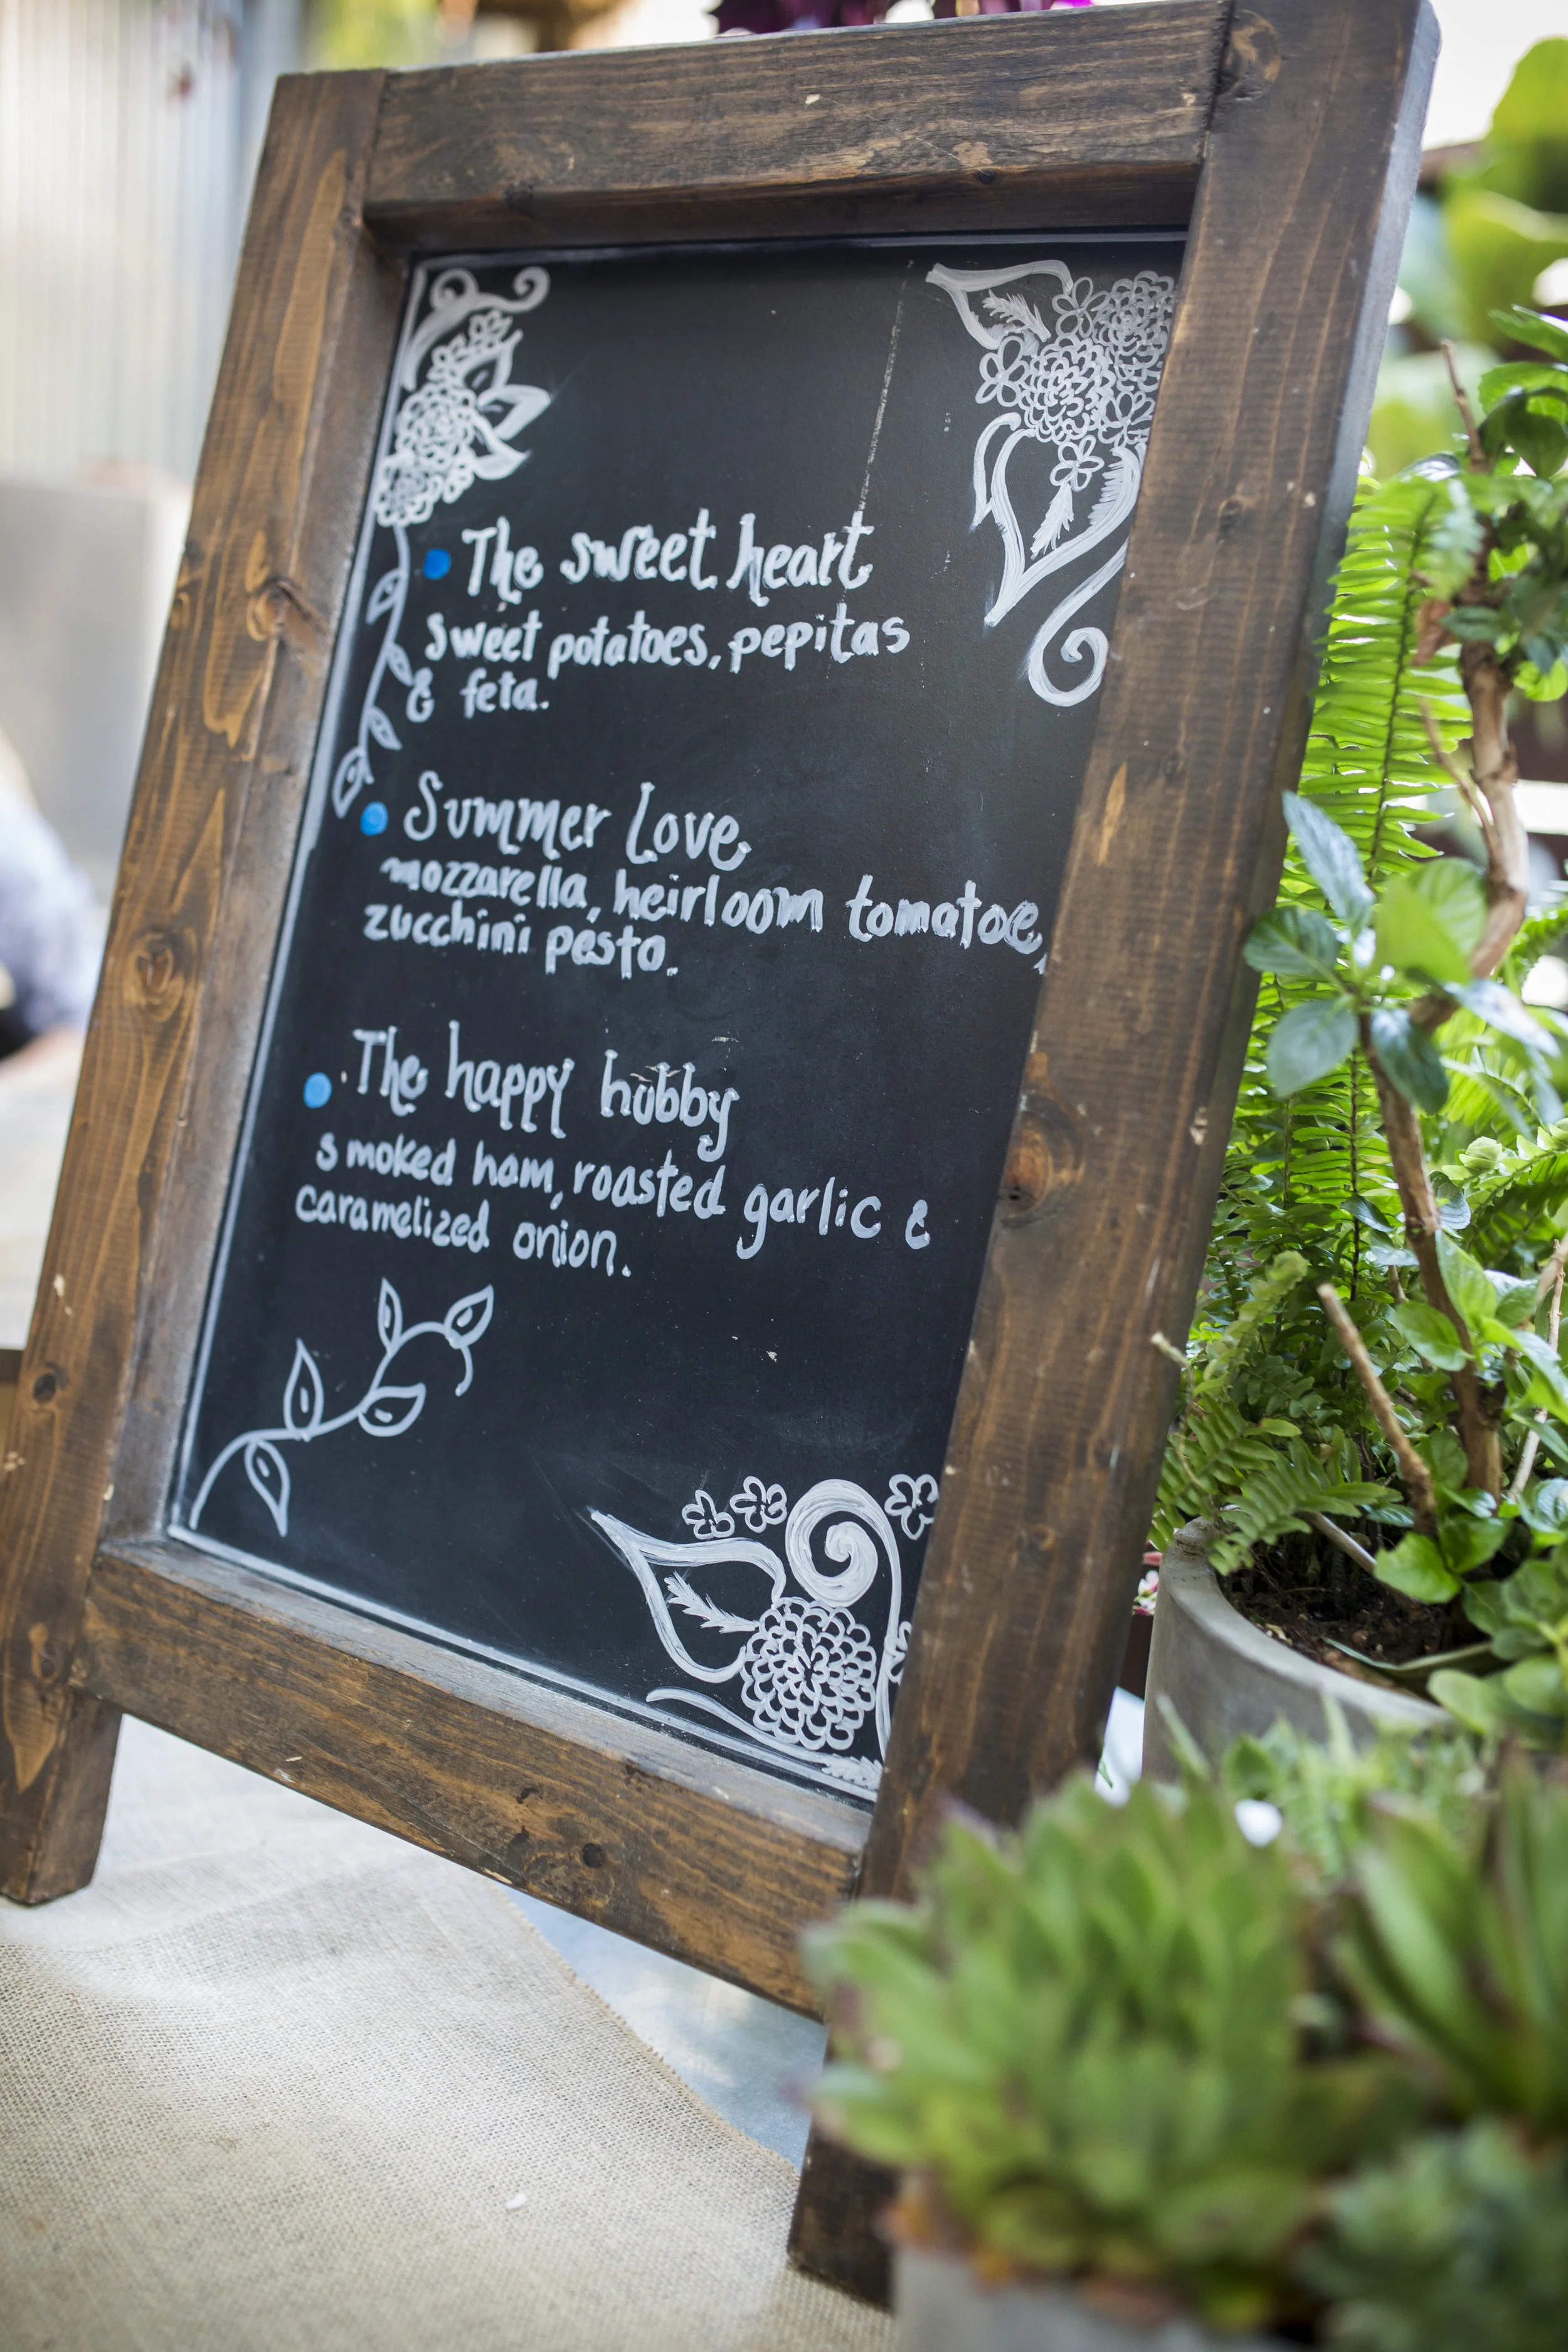 The sweet heart
sweet potatoes, pepitas
& feta.
Summer Love
mozzarella, heirloom tomatoe,
zucchini pesto.
The happy hubby
smoked ham, roasted garlic &
caramelized onion.